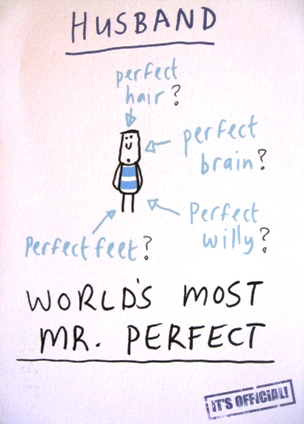 HUSBAND
perfect
hair?
perfect
brain?
Perfect
willy?
Perfect feet?
WORLD'S MOST
MR. PERFECT
IT'S OFFICIAL!